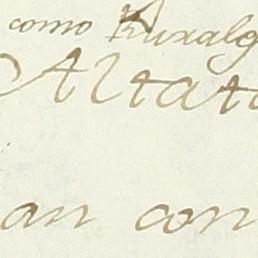 como Ruralg
Altat
an con